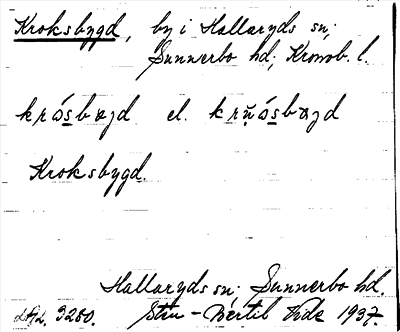 Kroksbygd, by i Hallaryds sn;
Sunnerbo hd; Kronob. l.
krósbajd el. krŭósbajd
Kroksbygd.
Hallaryds sn; Sunnerbo hd.
3280. Sten-Bertil Vide 1937